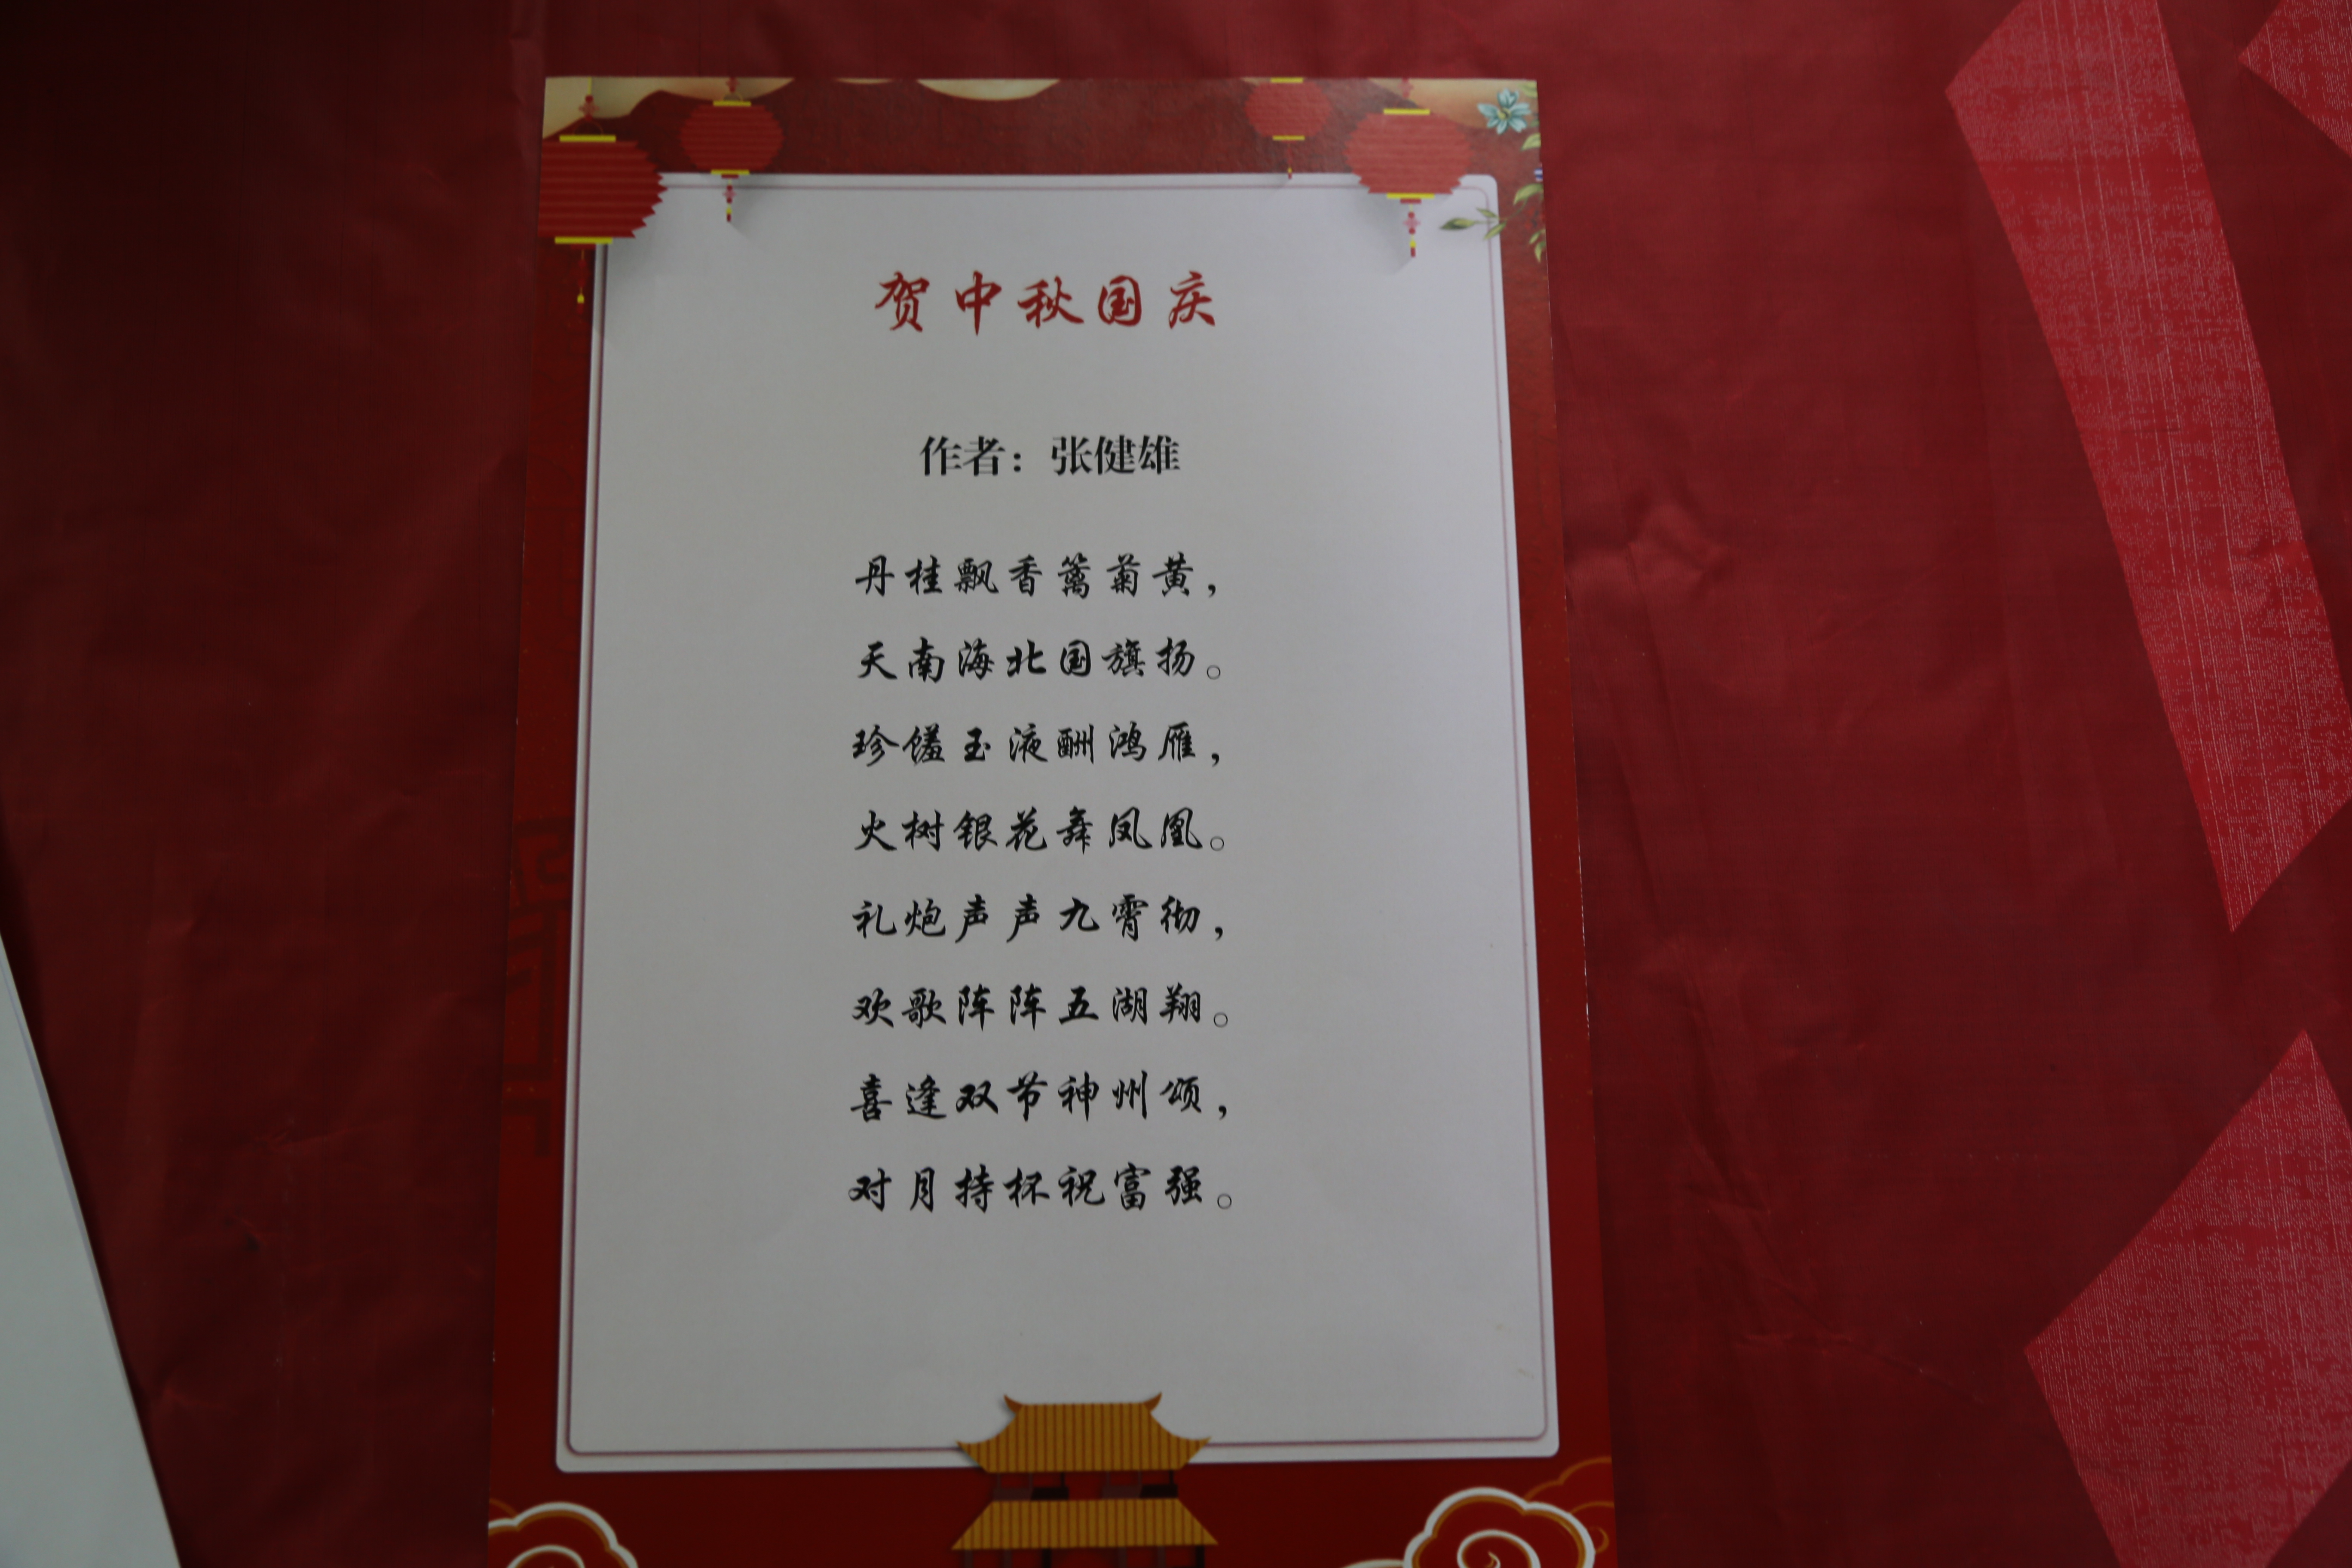 贺中秋国庆
作者：张健雄
丹桂飘香篱菊黄，
天南海北国旗扬。
珍馐玉液酬鸿雁，
火树银花舞凤凰。
礼炮声声九霄彻，
欢歌阵阵五湖翔。
喜逢双节神州颂，
对月持杯祝富强。